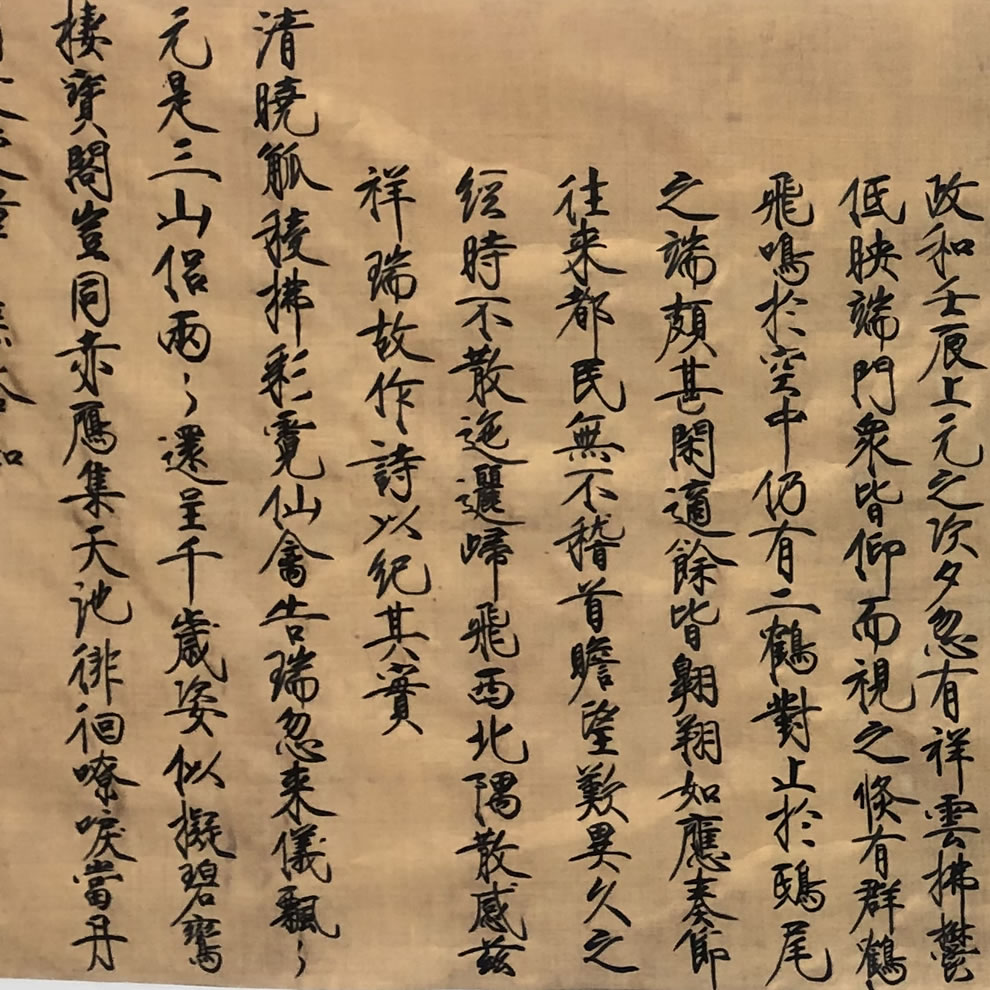 政和壬辰上元之次夕忽有祥雲拂鬱
低映端門衆皆仰而視之倏有群鶴
飛鳴於空中仍有二鶴對止於鴟尾
之端頗甚閑適餘皆翱翔如應奏節
往来都民無不稽首瞻望歎異久之
經時不散迤邐歸飛西北隅散感兹
祥瑞故作詩以紀其實
清曉觚稜拂彩霓仙禽告瑞忽来儀飄〻
元是三山侣兩〻還呈千歲姿似擬碧鸞
棲寶閣豈同赤鴈集天池徘徊嘹唳當丹